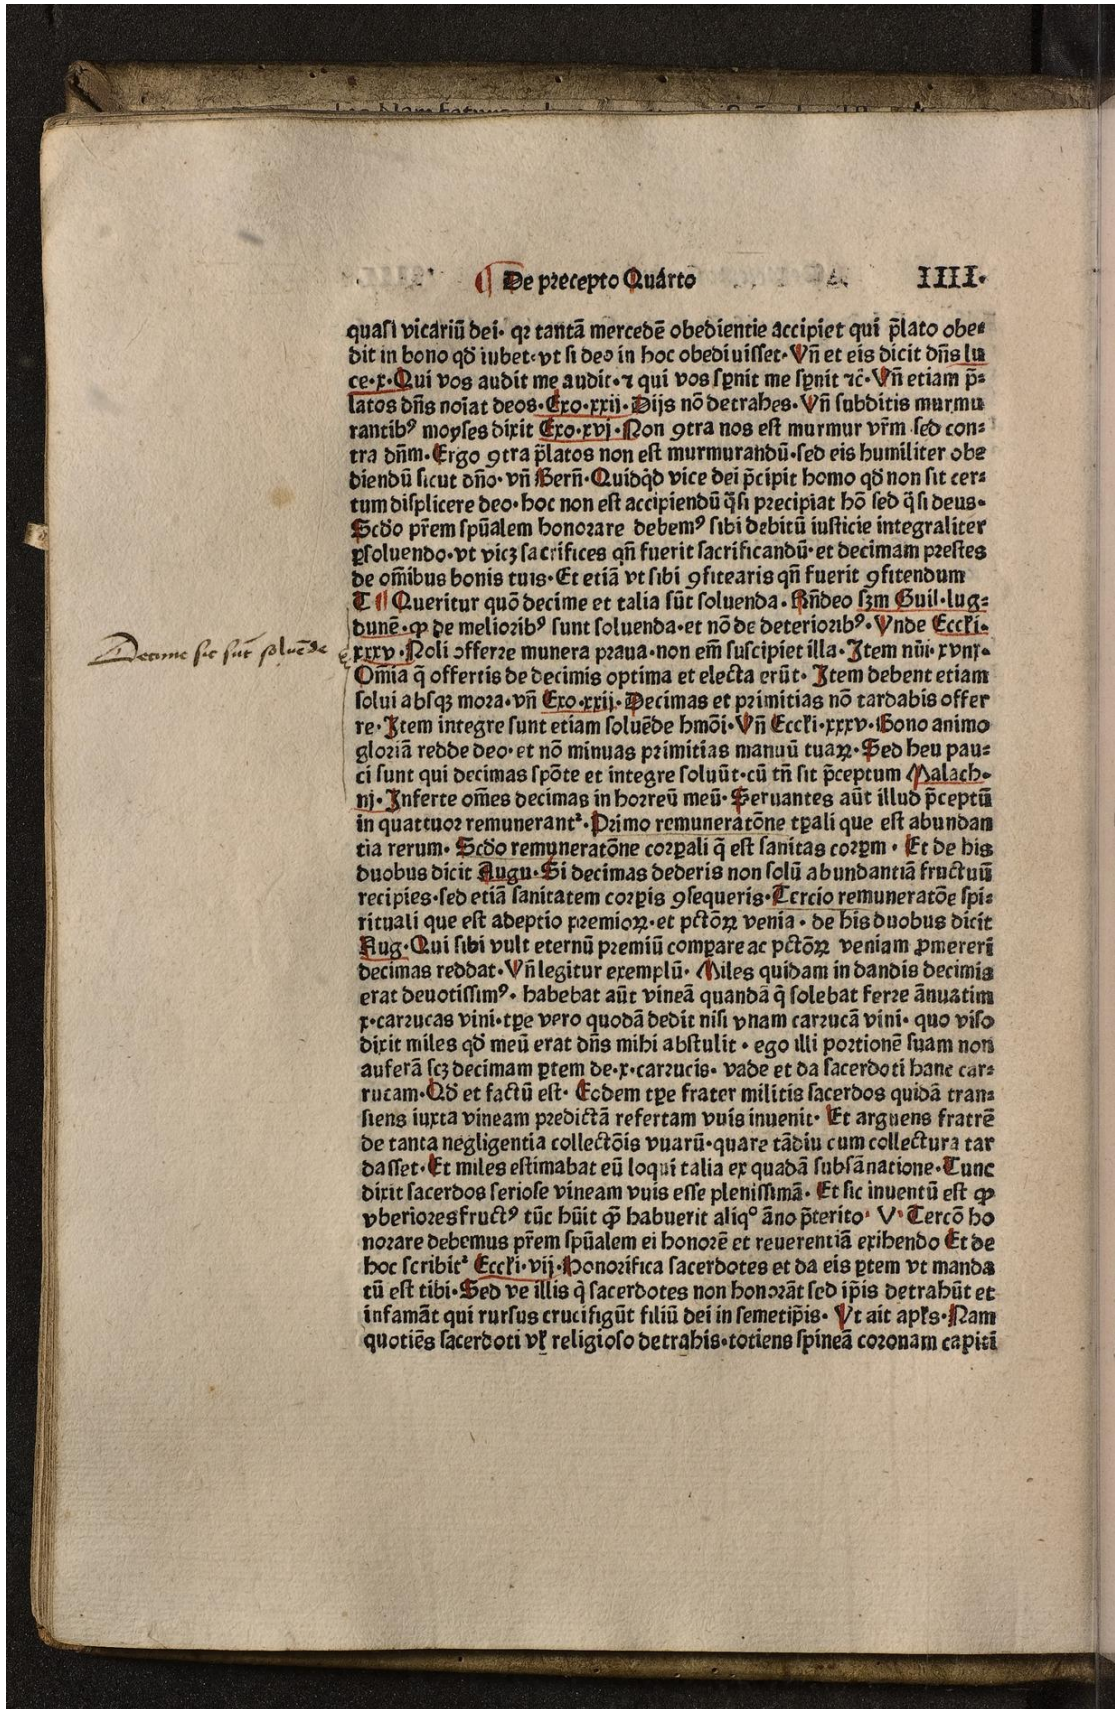 ¶ De precepto Quarto IIII·
quasi vicariū dei· qꝛ tantā mercedē obedientie accipiet qui p̄lato obe⸗
dit in bono qđ iubet·vt si deo in hoc obediuisset· Vn̄ et eis dicit dn̄s lu
ce·x·Qui vos audit me audit·⁊ qui vos spnit me spnit ⁊c̄· Vn̄ etiam p̄⸗
latos dn̄s noīat deos·Exo·xxij·Dijs nō detrahes·Vn̄ subditis murmu
rantibꝰ moyses dixit Exo·xvj·Non ꝯtra nos est murmur vr̄m sed con⸗
tra dn̄m·Ergo ꝯtra p̄latos non est murmurandū·sed eis humiliter obe
diendū sicut dn̄o·vn̄ Bern̄·Quidq̇d vice dei p̄cipit homo qđ non sit cer⸗
tum displicere deo·hoc non est accipiendū q̄si precipiat hō sed q̄si deus·
Scdo pr̄em spūalem honorare debemꝰ sibi debitū iusticie integraliter
ꝑsoluendo·vt vicꝫ sacrifices qn̄ fuerit sacrificandū·et decimam prestes
de om̄ibus bonis tuis·Et etiā vt sibi ꝯfitearis qn̄ fuerit ꝯfitendum
T ¶ Queritur quō decime et talia sūt soluenda· Rn̄deo sꝫm Guil·lug⸗
dunē·ꝙ de melioribꝰ sunt soluenda·et nō de deterioribꝰ·Vnde Eccki·
Decime sic sūt soluēde
xxxv·Noli offerre munera praua·non em̄ suscipiet illa·Item nūi·xvnj·
Om̄ia q̄ offertis de decimis optima et electa erūt· Item debent etiam
solui absqꝫ mora·vn̄ Exo·xxij·Decimas et primitias nō tardabis offer
re·Item integre sunt etiam soluēde hmōi·Vn̄ Eccki·xxxv·Bono animo
gloriā redde deo·et nō minuas primitias manuū tuaꝝ·Sed heu pau⸗
ci sunt qui decimas spōte et integre soluūt·cū tn̄ sit p̄ceptum Malach·
nj·Inferte om̄es decimas in horreū meū·Seruantes aūt illud p̄ceptū
in quattuor remunerantᷣ·Primo remuneratōne tꝑali que est abundan
tia rerum· Scdo remuneratōne corꝑali q̄ est sanitas corꝑm· Et de his
duobus dicit Augu·Si decimas dederis non solū abundantiā fructuū
recipies·sed etiā sanitatem corꝑis ꝯsequeris·Tercio remuneratōe spi⸗
rituali que est adeptio premioꝝ·et pctōꝝ venia· de his duobus dicit
Aug·Qui sibi vult eternū premiū comꝑare ac pctōꝝ veniam ꝓmereri
decimas reddat·Vn̄ legitur exemplū· Miles quidam in dandis decimis
erat deuotissimꝰ· habebat aūt vineā quandā q̄ solebat ferre ānuatim
x·carrucas vini·tꝑe vero quodā dedit nisi vnam carrucā vini· quo viso
dixit miles qđ meū erat dn̄s mihi abstulit· ego illi portionē suam non
auferā scꝫ decimam ꝑtem de·x·carrucis· vade et da sacerdoti hanc car⸗
rucam·Qđ et factū est· Eodem tꝑe frater militis sacerdos quidā tran⸗
siens iuxta vineam predictā refertam vuis inuenit· Et arguens fratrē
de tanta negligentia collectōis vuarū·quare tādiu cum collectura tar
dasset·Et miles estimabat eū loqui talia ex quadā subsānatione·Tunc
dixit sacerdos seriose vineam vuis esse plenissimā· Et sic inuentū est ꝙ
vberiores fructꝰ tūc hūit ꝙ̄ habuerit aliqº āno p̄terito· V· Tercō ho
norare debemus pr̄em spūalem ei honorē et reuerentiā exibendo Et de
hoc scribitᷣ Eccki·vij·Honorifica sacerdotes et da eis ꝑtem vt manda
tū est tibi·Sed ve illis q̄ sacerdotes non honorāt sed ip̄is detrahūt et
infamāt qui rursus crucifigūt filiū dei in semetip̄is· Vt ait apłs·Nam
quotiēs sacerdoti vł religioso detrahis·totiens spineā coronam capiti